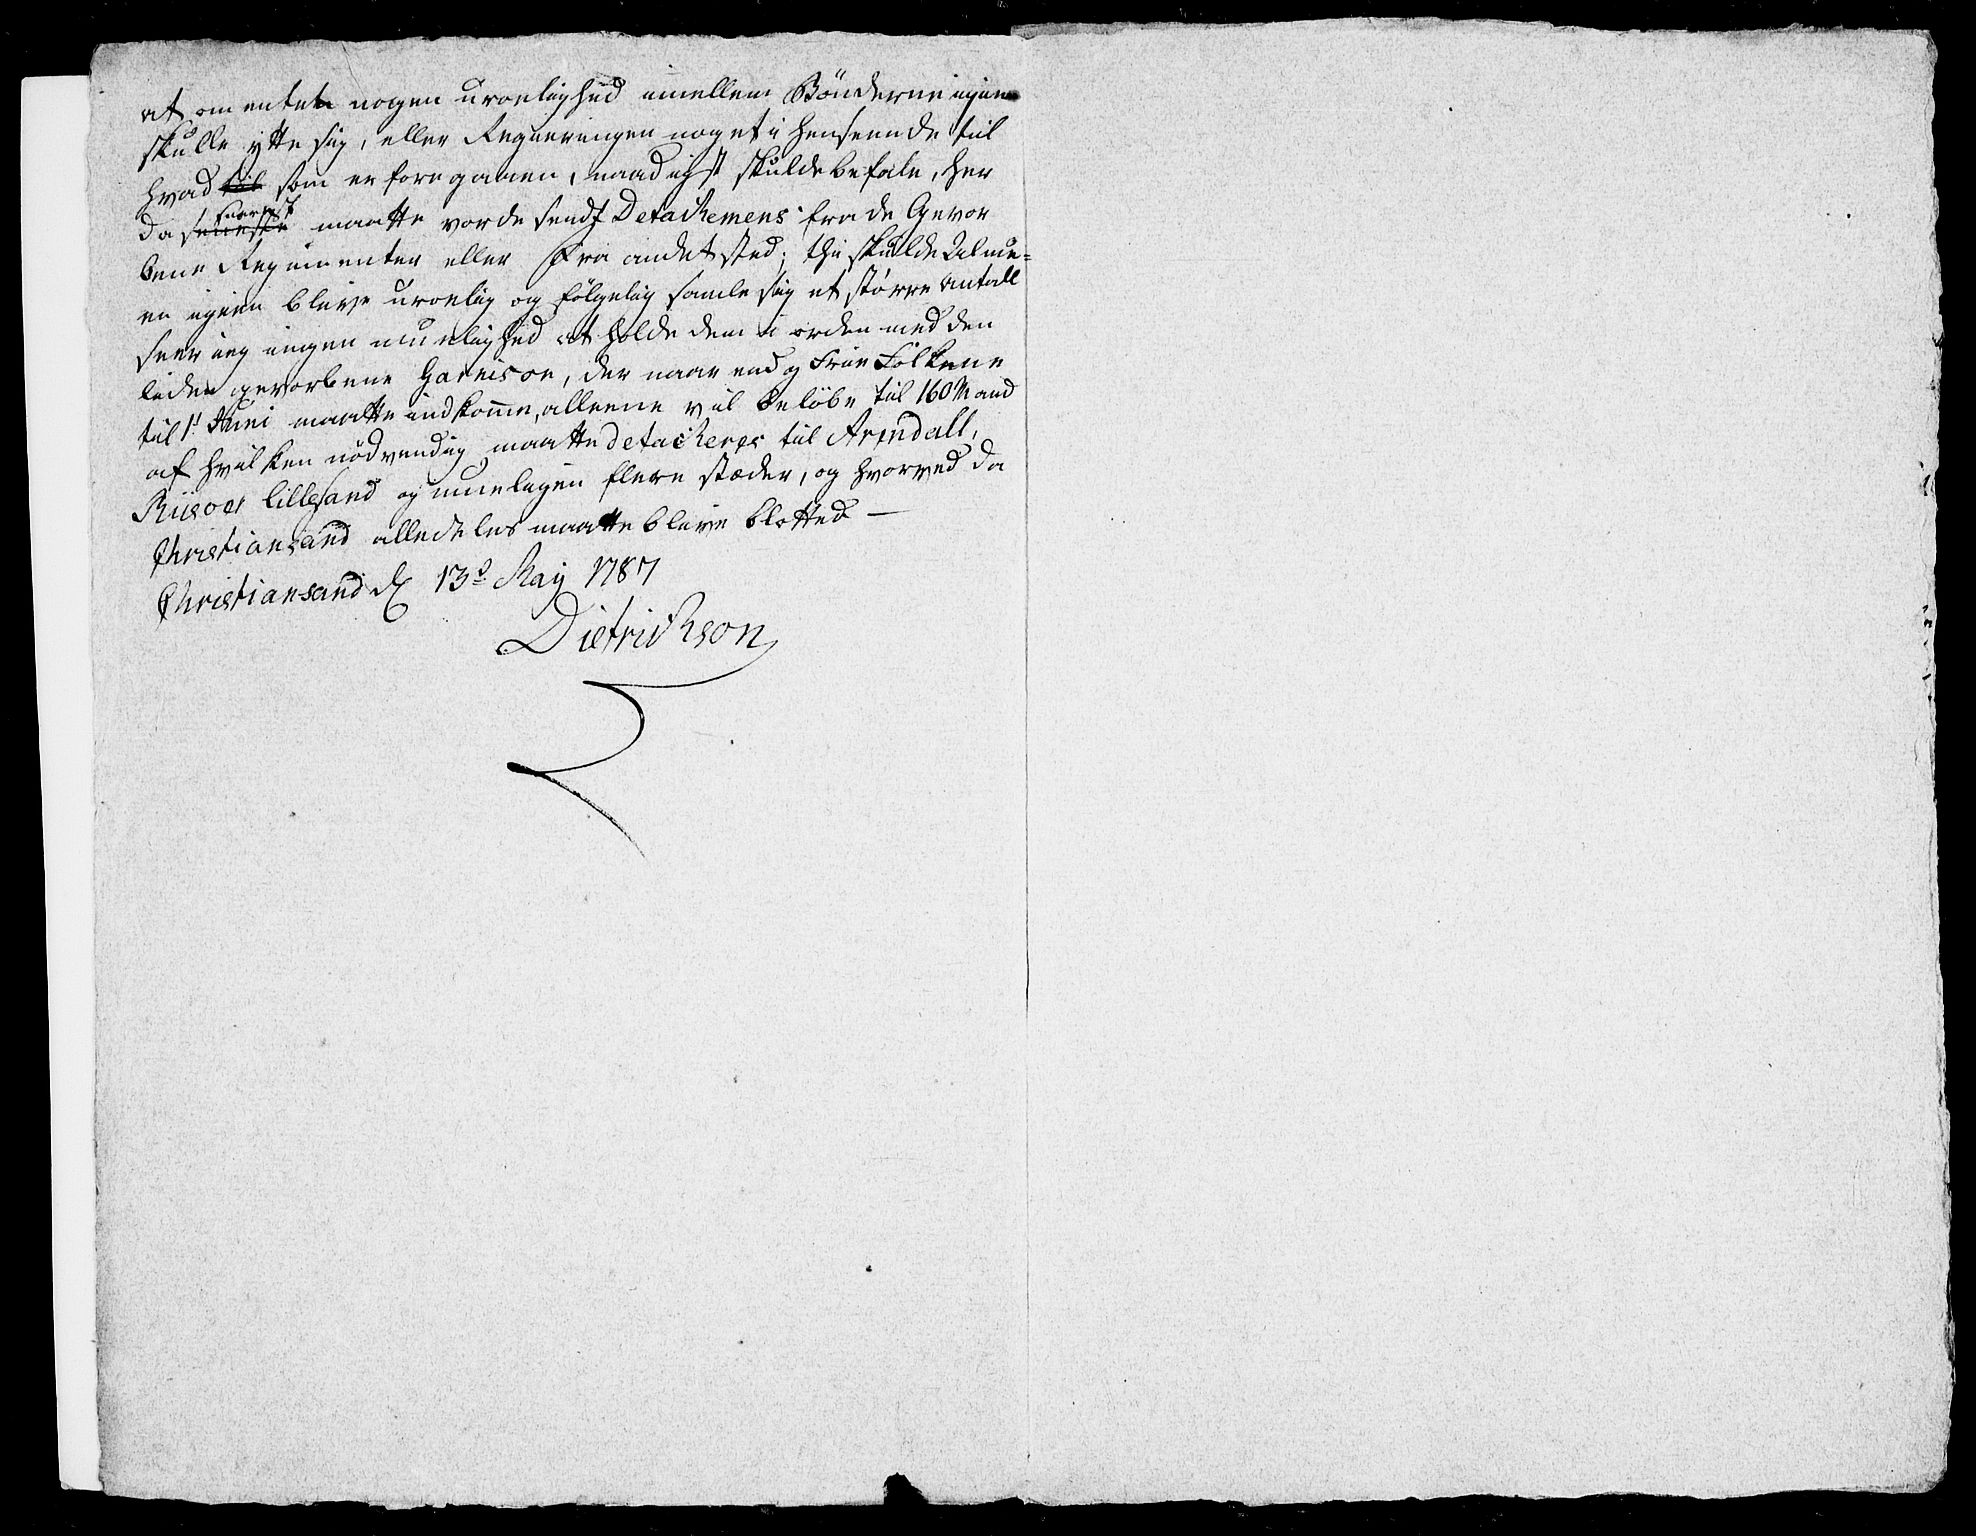 at om enten nogen uroelighed imellem Bönderne igien
skulle ytte sig, eller Regieringen noget i henseende til
hvad som er foregaaen, naadigst skulde befale, her
da snarest maatte vorde sendt Detachemens fra de Gevor
bene Regimenter eller fra andet sted; thi skulde Almue-
en igien blive uroelig og følgelig samle sig et større antall
seer ieg ingen muelighed at holde dem i orden med den
liden gevorbene Garnison, der naar endog Frie Folkene
til 1t Juni maatte indkomme, alleene vil beløbe til 160 Mand
af hvilken nödvendig maatte detacheres til Arendall,
Riisøer Lillesand og muelagen flere stæder, og hvorved da
Christiansand alledeles maatte blive blotted —
Christiansand d 13de May 1787
Dietrichson